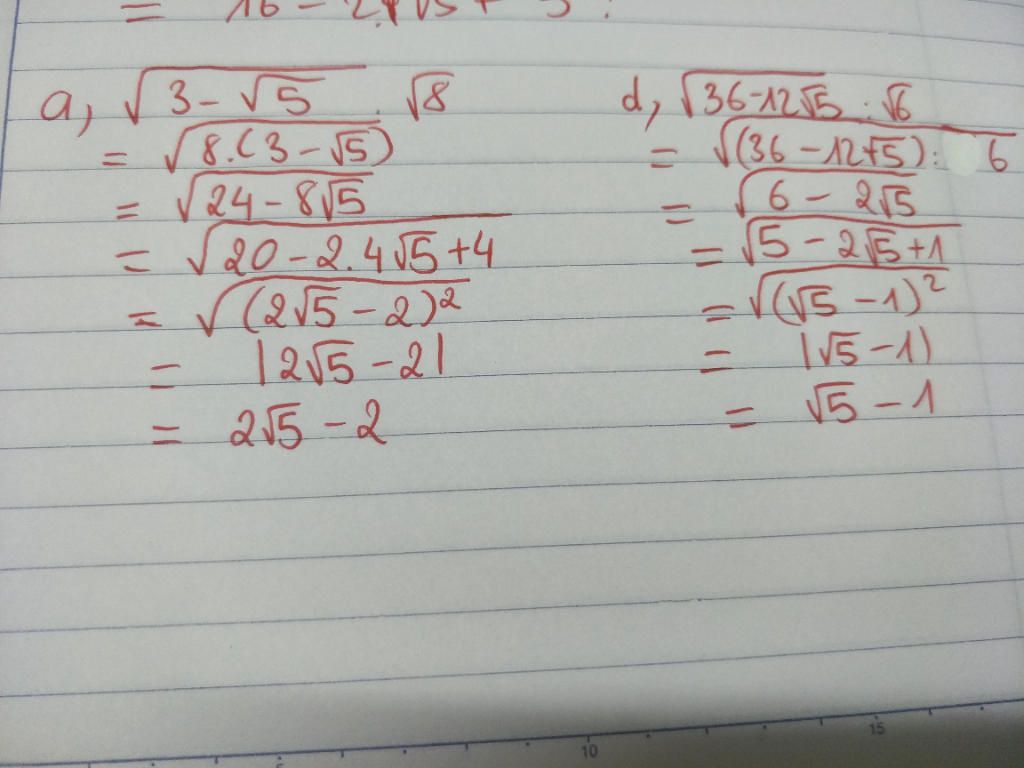 = 16 - 2.
a, √(3 - √5) . √8
= √(8.(3 - √5))
= √(24 - 8√5)
= √(20 - 2.4√5 + 4)
= √((2√5 - 2)²)
= |2√5 - 2|
= 2√5 - 2
d, √(36 - 12√5) : √6
= √((36 - 12√5) : 6)
= √(6 - 2√5)
= √(5 - 2√5 + 1)
= √((√5 - 1)²)
= |√5 - 1|
= √5 - 1
5
10
15